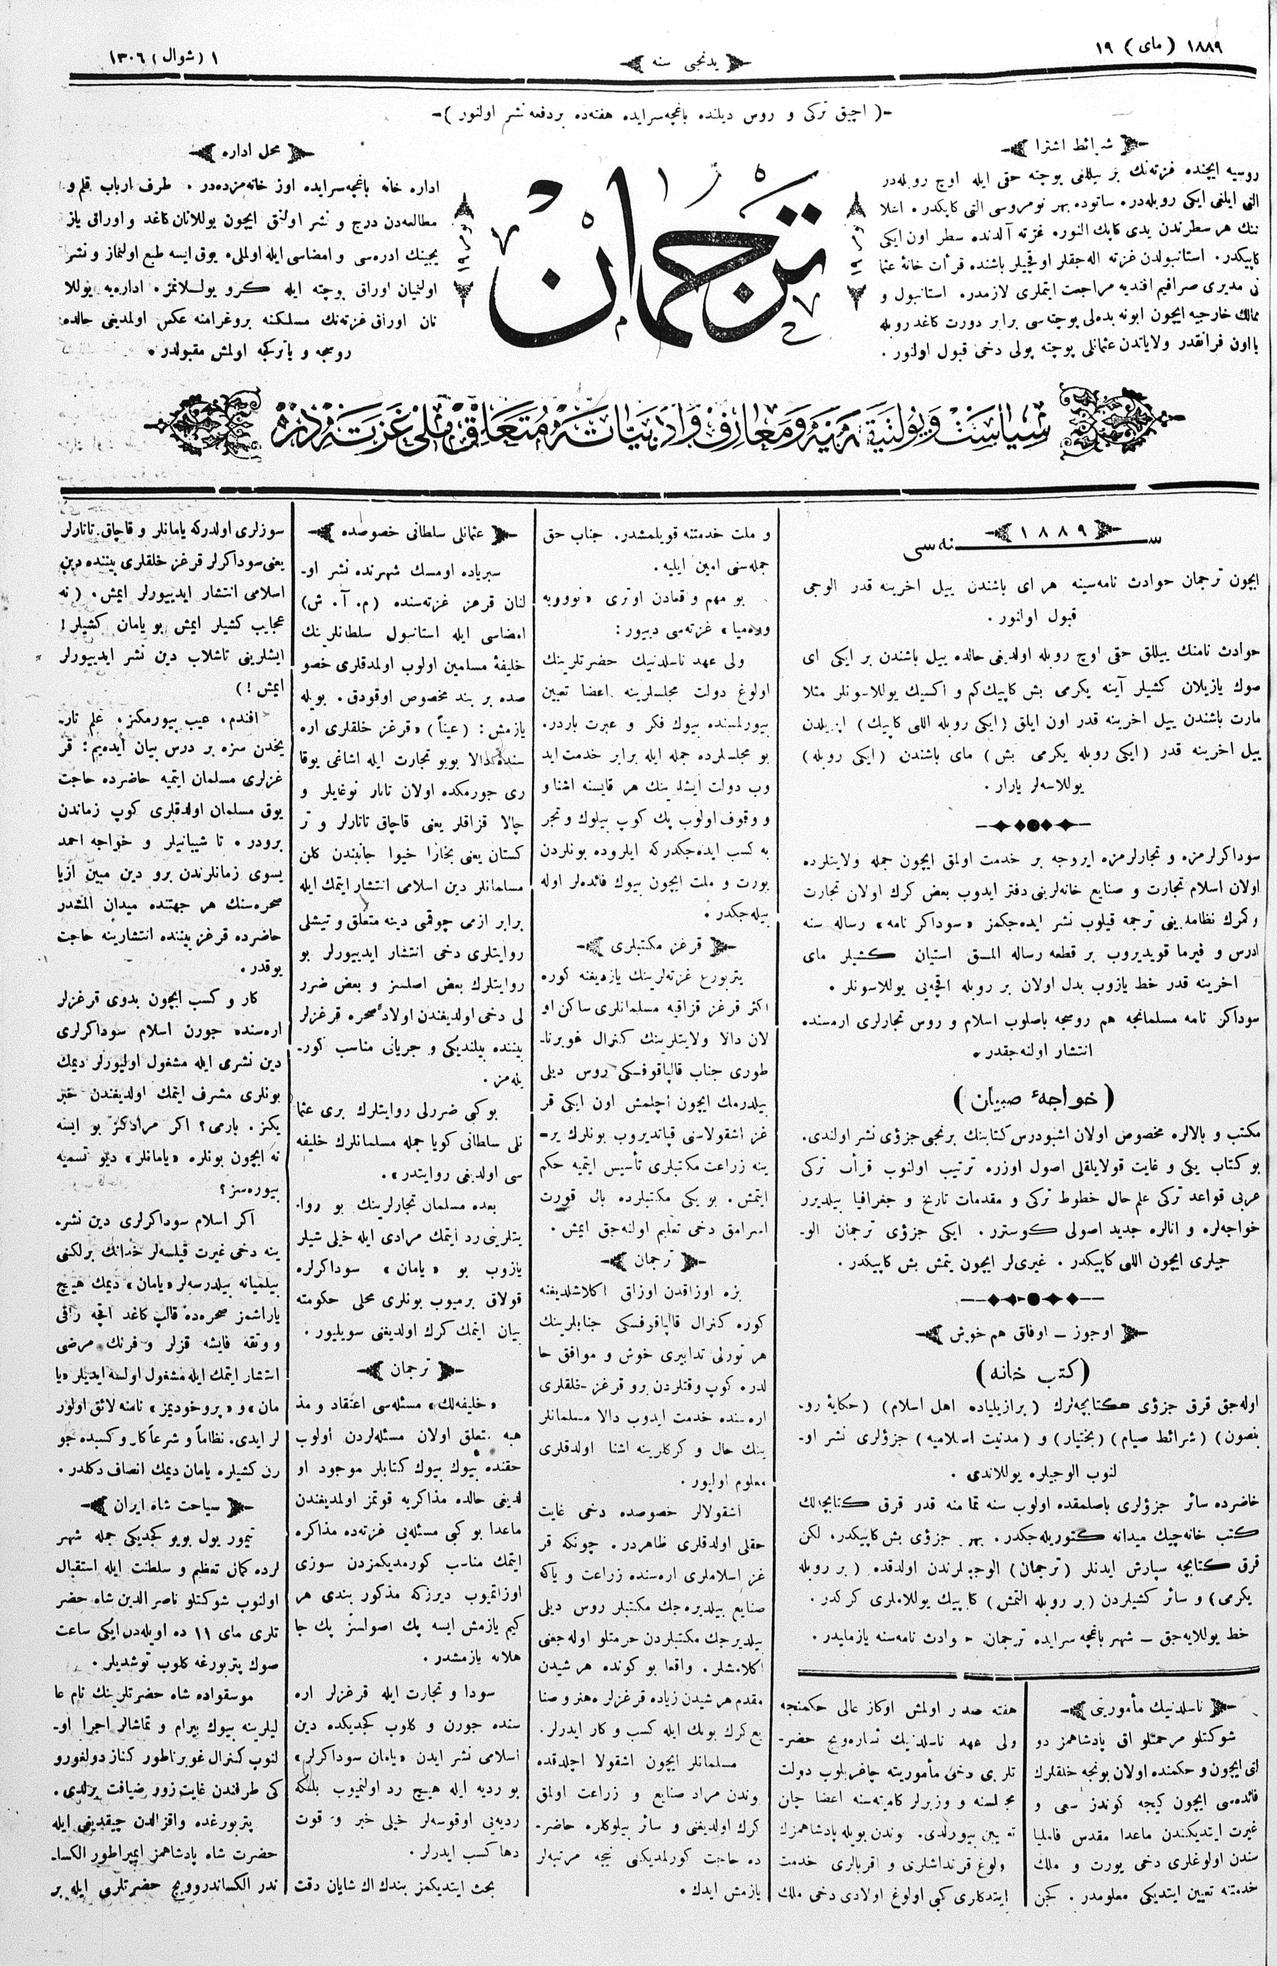 ١٨٨٩ (مای) ١٩
یدنجی سنه
١ (شوال) ١٣٠٦
-( اچیق ترکی و روس دیلنده باغچه‌سرایده هفته‌ده بر دفعه نشر اولنور )-
شرائط اشترا
روسیه ایچنده غزته‌نك بر ییللغی پوچته حقی ایله اوچ روبله‌در
التی ایلغی ایکی روبله‌در. ساتوده بهر نومروسی التی کاپکدر. اعلا
ننك هر سطرندن یدی کاپك النور. غزته آلدنده سطر اون ایکی
کاپیکدر.
ممالك خارجیه ایچون ابونه بدلی پوچتاسی برابر دورت کاغد روبله
یا اون فرانقدر ولایاتدن عثمانلی پوچته پولی دخی قبول اولنور.
ترجمان
نومرو ١٩
محل اداره
اداره خانه باغچه‌سرایده اوز خانه‌مزده‌در. طرف ارباب قلم و
مطالعه‌دن درج و نشر اولنق ایچون یوللانان کاغد و اوراق یاز
یجینك ادره‌سی و امضاسی ایله اولملی. یوق ایسه طبع اولنماز و نشر
اولنمیان اوراق پوچته ایله کرو یوللانمز. اداره‌یه یوللا
نان اوراق غزته‌نك مسلکنه پروغرامنه عکس اولمدیغی حالده
روسجه و یا ترکجه اولمش مقبولدر.
١٨٨٩
سنه‌سی
ایچون ترجمان حوادث نامه‌سینه هر ای باشندن ییل اخرینه قدر الوجی
قبول اولنور.
حوادث نامنك ییللق حقی اوچ روبله اولدیغی حالده ییل باشندن بر ایکی ای
صوك یازیلان کشیلر آینه یکرمی بش کاپیك کم و اکسیك یوللاسونلر مثلا
مارت باشندن ییل اخرینه قدر اون ایلق (ایکی روبله اللی کاپیك) اپریلدن
ییل اخرینه قدر (ایکی روبله یکرمی بش) مای باشندن (ایکی روبله)
یوللاسه‌لر یارار.
سوداکرلرمزه و تجارلرمزه ایروجه بر خدمت اولمق ایچون جمله ولایتلرده
اولان اسلام تجارت و صنایع خانه‌لرینی دفتر ایدوب بعض کرك اولان تجارت
وکمرك نظامدینی ترجمه قیلوب نشر ایده‌جکمز «سوداکر نامه» رساله سنه
ادرس و فیرما قویدیروب بر قطعه رساله المق استیان کشیلر مای
اخرینه قدر خط یازوب بدل اولان بر روبله اقچه‌یی یوللاسونلر.
سوداکر نامه مسلمانجه هم روسجه باصلوب اسلام و روس تجارلری اره‌سنده
انتشار اولنه‌جقدر.
(خواجهٔ صبیان)
مکتب و بالالره مخصوص اولان اشبو درس کتابنك برنجی جزؤی نشر اولندی.
بو کتاب یکی و غایت قولایلقلی اصول اوزره ترتیب اولنوب قرأت ترکی
عربی قواعد ترکی علم حال خطوط ترکی و مقدمات تاریخ و جغرافیا بیلدیرر
خواجه‌لره و انالره جدید اصولی کوسترر. ایکی جزؤی ترجمان الو-
جیلری ایچون اللی کاپیکدر. غیری‌لر ایچون یتمش بش کاپیکدر.
اوجوز ــ اوفاق هم خوش
(کتب خانه)
اوله‌جق قرق جزؤی کتابچه‌لرك (برازیلیاده اهل اسلام) (حکایهٔ رو-
بنصون) (شرائط صیام) (بختیار) و (مدنیت اسلامیه) جزؤلری نشر او-
لنوب الوجیلره یوللاندی.
حاضرده سائر جزؤلری باصلمقده اولوب سنه تمامنه قدر قرق کتابچه‌لك
کتب خانه‌چیك میدانه کتوریله‌جکدر. بهر جزؤی بش کاپیکدر. لکن
قرق کتابچه سپارش ایدنلر (ترجمان) الوجیلرندن اولدقده (بر روبله
یکرمی) و سائر کشیلردن (بر روبله التمش) کاپیك یوللاملری کرکدر.
خط یوللایه‌جق ــ شهر باغچه سرایده ترجمان حوادث نامه‌سنه یازمایدر.
ناسلدنیك مأموریتی
شوکتلو مرحمتلو اق پادشاهمز دو
لتی ایچون و حکمنده اولان بونجه خلقلرك
فائده‌سی ایچون کیجه کوندز سعی و
غیرت ایتدیکندن ماعدا مقدس فامیلیا
سندن اولوغلری دخی یورت و ملك
خدمتنه تعیین ایتدیکی معلومدر. کچن
هفته صدر اولمش اوکاز عالی حکمنجه
ولی عهد ناسلدنیك تساره‌ویچ حضر-
تلری دخی مأموریته چاغریلوب دولت
مجلسنه و وزیرلر کامیته‌سنه اعضا جان
تعیین بیورلدی. بوندن بویله پادشاهمزك
اولوغ قرنداشلری و اقربالری خدمت
ایتدکلری کبی اولوغ اولادی دخی ملك
و ملت خدمتنه قویلمشدر. جناب حق
جمله‌سنی امین ایلیه.
بو مهم و قعادن اوتری «نوویه
وره‌میا» غزته‌سی دییور:
ولی عهد ناسلدنیك حضرتلرینك
اولوغ دولت مجلسلرینه اعضا تعیین
بیورلمسنده بیوك فکر و عبرت باردر.
بو مجلسلرده جمله ایله برابر خدمت اید
وب دولت ایشلرینك هر قایسنه اشنا و
و وقوف اولوب پك کوپ بیلوك و تجر
به کسب ایده‌جکدرکه ایلروده بونلردن
یورت و ملت ایچون بیوك فائده‌لر اوله
بیله‌جکدر.
قرغز مکتبلری
پتربورغ غزته‌لرینك یازدیغنه کوره
اکثر قرغز قزاقیه مسلمانلری ساکن او
لان دالا ولایتلرینك کنرال غوبرنا-
طوری جناب قالپاقوفسکی روس دیلی
بیلدرمك ایچون اچلمش اون ایکی قر
غز اشقولاسنی قپاتدیروب بونلرك یر-
ینه زراعت مکتبلری تأسیس ایتمیه حکم
ایتمش. بو یکی مکتبلرده بال قورت
اسرامق دخی تعلیم اولنه‌جق ایمش.
ترجمان
بزه اوزاقدن اوزاق اکلاشلدیغنه
کوره کنرال قالپاقوفسکی جنابلرینك
هر تورلی تدابیری خوش و موافق حا
لدر. کوپ وقتلردن برو قرغز خلقلری
اره‌سنده خدمت ایدوب دالا مسلمانلر
ینك حال و کرکلرینه اشنا اولدقلری
معلوم اولیور.
اشقولالر خصوصده دخی غایت
حقلی اولدقلری ظاهردر. چونکه قر
غز اسلاملری اره‌سنده زراعت و یاکه
صنایع بیلدیره‌جك مکتبلر روس دیلی
بیلدیرجك مکتبلردن حرمتلو اوله‌جغی
اکلامشلر. واقعا بو کونده هر شیدن
مقدم هر شیدن زیاده قرغزلر هنر و صنا
یع کرك بونك ایله کسب و کار ایدرلر.
مسلمانلر ایچون اشقولا اچلدقده
وندن مراد صنایع و زراعت اولمق
کرك اولدیغی و سائر بیلوکلره حاضر-
ده حاجت کورلمدیکنی نیجه مرتبه‌لر
یازمش ایدك.
عثمانلی سلطانی خصوصده
سبریاده اومسك شهرنده نشر او-
لنان قرغز غزته‌سنده (م. آ. ش)
امضاسی ایله استانبول سلطانلرینك
خلیفهٔ مسلمین اولوب اولمدقلری خصو
صده بر بند مخصوص اوقودق. بویله
یازمش: (عیناً) «قرغز خلقلری اره
سنده دالا بویو تجارت ایله اشاغی یوقا
ری جورمکده اولان تاتار نوغایلر و
چالا قزاقلر یعنی قاچاق تاتارلر و تر
کستان یعنی بخارا خیوا جانبندن کلن
مسلمانلر دین اسلامی انتشار ایتمك ایله
برابر ازمی چوقمی دینه متعلق و تیشلی
روایتلری دخی انتشار ایدیورلر بو
روایتلرك بعض اصلسز و بعض ضرر
لی دخی اولدیغندن اولاد صحره قرغزلر
بیننده بیلندیکی و جریانی مناسب کور-
یله‌مز.
بو کبی ضررلی روایتلرك بری عثما
نلی سلطانی کویا جمله مسلمانلرك خلیفه
سی اولدیغی روایتدر».
بعده مسلمان تجارلرینك بو روا-
یتلرینی رد ایتمك مرادی ایله خیلی شیلر
یازوب بو «یامان» سوداکرلره
قولاق برمیوب بونلری محلی حکومته
بیان ایتمك کرك اولدیغنی سویلیور.
ترجمان
«خلیفه‌لك» مسئله‌سی اعتقاد و مذ
هبه متعلق اولان مسئله‌لردن اولوب
حقنده بیوك بیوك کتابلر موجود او
لدیغی حالده مذاکریه قوتمز اولمدیغندن
ماعدا بو کبی مسئله‌یی غزته‌ده مذاکره
ایتمك مناسب کورمدیکمزدن سوزی
اوزاتمیوب دیرزکه مذکور بندی هر
کیم یازمش ایسه پك اصولسز پك جا
هلانه یازمشدر.
سودا و تجارت ایله قرغزلر اره
سنده جورن و کلوب کچدیکده دین
اسلامی نشر ایدن «یامان سوداکرلر»
بو ردیه ایله هیچ رد اولنمیوب بلکه
ردیه‌یی اوقوسه‌لر خیلی خبر و قوت
دها کسب ایدرلر.
بحث ایتدیکمز بندك اك شایان دقت
سوزلری اولدرکه یامانلر و قاچاق تاتارلر
یعنی سوداکرلر قرغز خلقلری بیننده دین
اسلامی انتشار ایدییورلر ایمش. (نه
عجایب کشیلر ایمش بو یامان کشیلر!
ایشلرینی تاشلاب دین نشر ایدییورلر
ایمش!)
افندم، عیب بیورمکز، علم تار-
یخدن سزه بر درس بیان ایده‌یم: قر
غزلری مسلمان ایتمیه حاضرده حاجت
یوق مسلمان اولدقلری کوپ زماندن
برودر. تا شیبانیلر و خواجه احمد
یسوی زمانلرندن برو دین مبین ازیا
صحره‌سنك هر جهتنده میدان المشدر
حاضرده قرغز بیننده انتشارینه حاجت
یوقدر.
کار و کسب ایچون بدوی قرغزلر
اره‌سنده جورن اسلام سوداکرلری
دین نشری ایله مشغول اولیورلر دیمك
بونلری مشرف ایتمك اولدیغندن خبر
یکز. بارمی؟ اکر مرادکز بو ایسه
نه ایچون بونلره «یامانلر» دیو تسمیه
بیوره‌سز؟
اکر اسلام سوداکرلری دین نشر-
ینه دخی غیرت قیلسه‌لر خدانك برلکنی
بیلمیانه بیلدرسه‌لر «یامان» دیمك هیچ
یاراشمز صحره‌ده قالپ کاغد اقچه راقی
و وتقه فایشه قزلر و فرنك مرضی
انتشار ایتمك ایله مشغول اولسه ایدیلر «یا
مان» و «پروخودیمز» نامنه لائق اولور
لر ایدی. نظاماً و شرعاً کار و کسبده جو
رن کشیلره یامان دیمك انصاف دکلدر.
سیاحت شاه ایران
تیمور یول بویو کچدیکی جمله شهر
لرده کمال تعظیم و سلطنت ایله استقبال
اولنوب شوکتلو ناصر الدین شاه حضر
تلری مای ١١ ده اویله‌دن ایکی ساعت
صوك پتربورغه کلوب توشدیلر.
موسقواده شاه حضرتلرینك نام عا
لیلرینه بیوك بیرام و تماشالر اجرا او-
لنوب کنرال غوبرناطور کناز دولغورو
کی طرفندن غایت زور ضیافت بزلدی.
پتربورغده واقزالدن چیقدیغی ایله
حضرت شاه پادشاهمز ایمپراطور الکسا-
ندر الکساندروویچ حضرتلری ایله بر